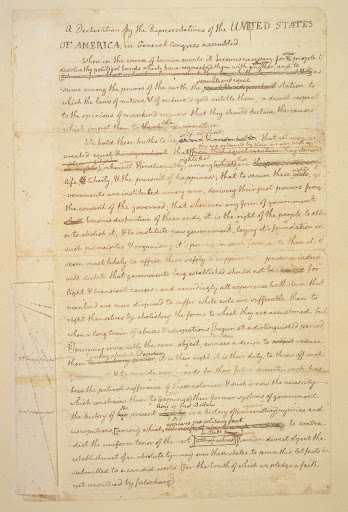 A Declaration by the Representatives of the UNITED STATES
OF AMERICA, in General Congress assembled.
When in the course of human events it becomes necessary for one people to
dissolve the political bands which have connected them with another, and to
assume among the powers of the earth the separate and equal station to
which the laws of nature & of nature's god entitle them, a decent respect
to the opinions of mankind requires that they should declare the causes
which impel them to the separation.
We hold these truths to be self-evident that all men are
created equal
life, & liberty, & the pursuit of happiness; that to secure these rights, go
vernments are instituted among men, deriving their just powers from
the consent of the governed; that whenever any form of government
becomes destructive of these ends, it is the right of the people to alter
or to abolish it, & to institute new government, laying it's foundation on
such principles & organising it's powers in such form, as to them shall
seem most likely to effect their safety & happiness. prudence indeed
will dictate that governments long established should not be changed for
light & transient causes: and accordingly all experience hath shewn that
mankind are more disposed to suffer while evils are sufferable, than to
right themselves by abolishing the forms to which they are accustomed. but
when a long train of abuses & usurpations [begun at a distinguished period
& pursuing invariably the same object, evinces a design to reduce
them under absolute Despotism it is their right, it is their duty, to throw off such
& to provide new guards for their future security. such has
been the patient sufferance of these colonies; & such is now the necessity
which constrains them to [expunge] their former systems of government.
the history of the present is a history of injuries and
usurpations, [among which, appears no solitary fact to contra-
dict the uniform tenor of the rest, all of which have in direct object the
establishment of an absolute tyranny over these states. to prove this let facts be
submitted to a candid world, [for the truth of which we pledge a faith
yet unsullied by falsehood]